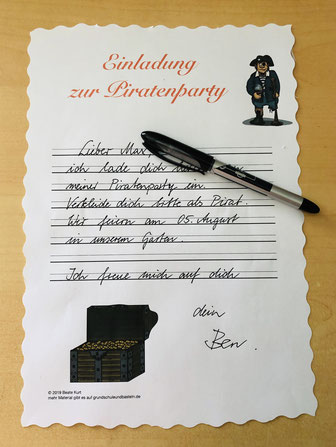 Einladung
zur Piratenparty
Lieber Max,
ich lade dich
meiner Piratenparty ein.
Verkleide dich bitte als Pirat.
Wir feiern am 05. August
in unserem Garten.
Ich freue mich auf dich
dein
Ben.
© 2019 Beate Kurt
mehr Material gibt es auf grundschuleundbasteln.de